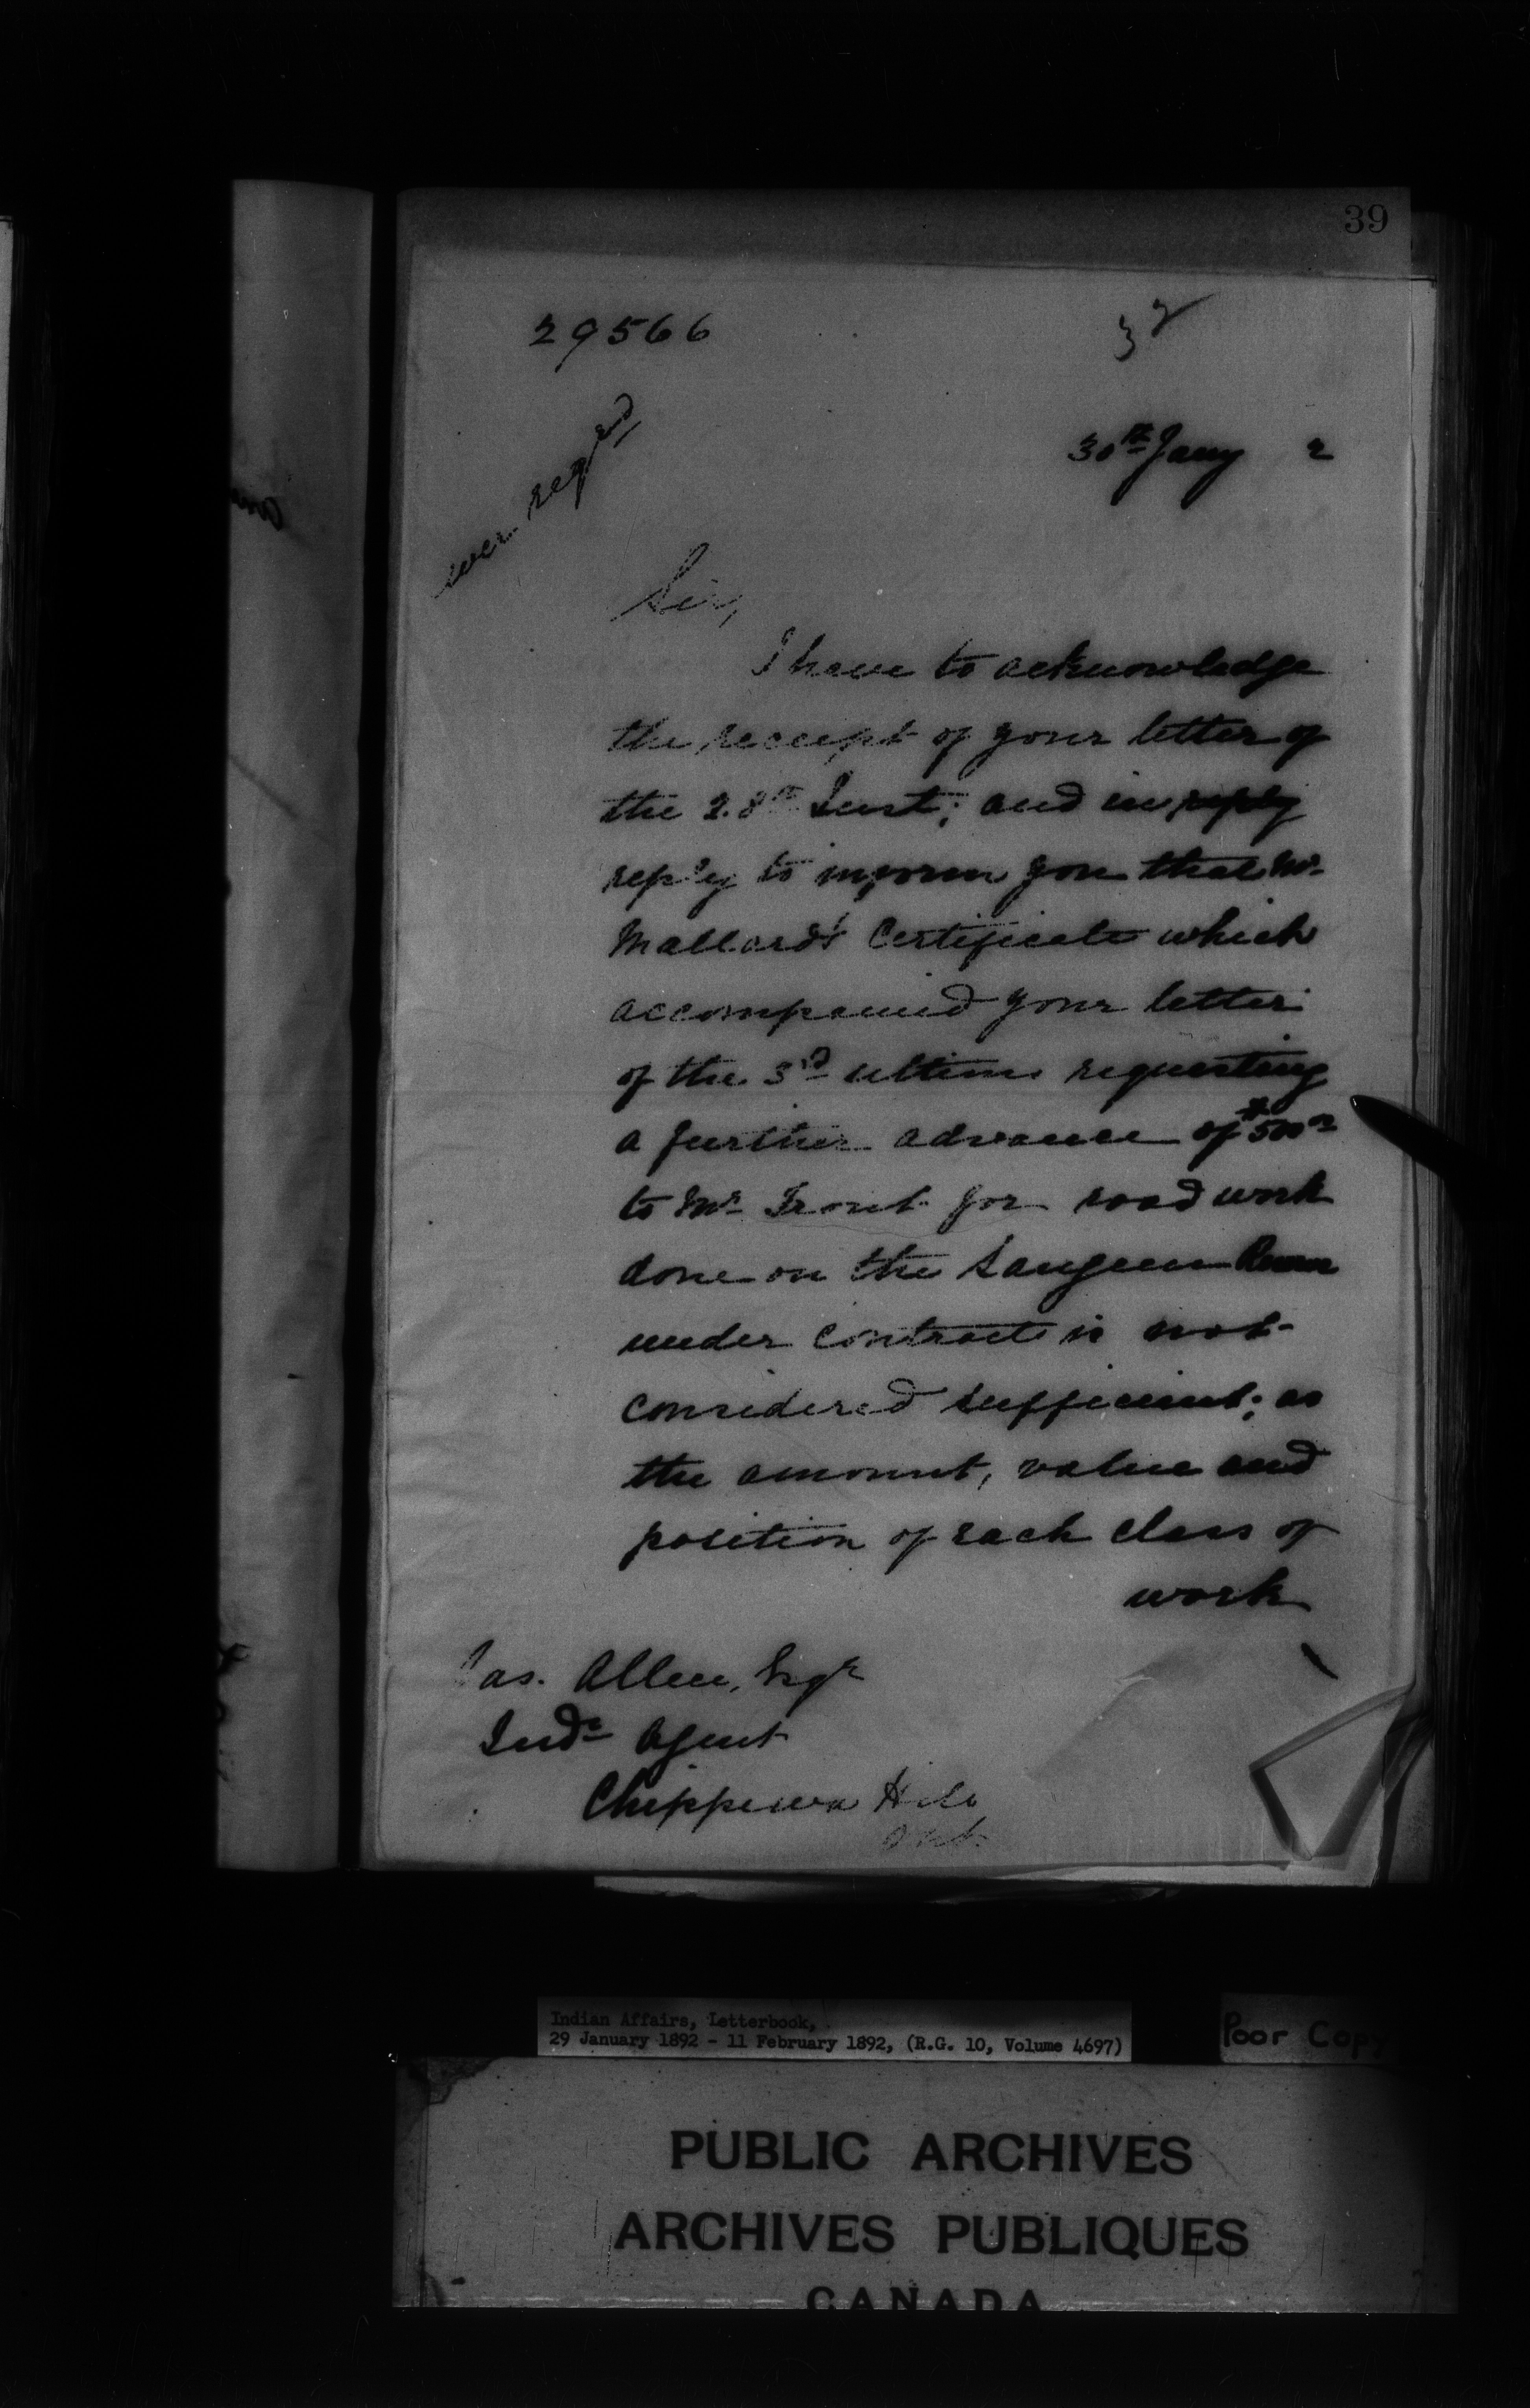 39
29566
32
30th Jany 2
Sir,
I have to acknowledge
the receipt of your letter of
the 28th Inst; and in reply
reply to inform you that Mr
Mallard's Certificate which
accompanied your letter
of the 3rd ultimo requesting
a further advance of $500
to Mr Trout for road work
done on the Saugeen
under contract is not
considered sufficient; as
the amount, value and
position of each class of
work
Jas. Allen, Esqr
Indn Agent
Chippewa Hill
Ont.
Indian Affairs, Letterbook,
29 January 1892 - 11 February 1892, (R.G. 10, Volume 4697)
Poor Copy
PUBLIC ARCHIVES
ARCHIVES PUBLIQUES
CANADA